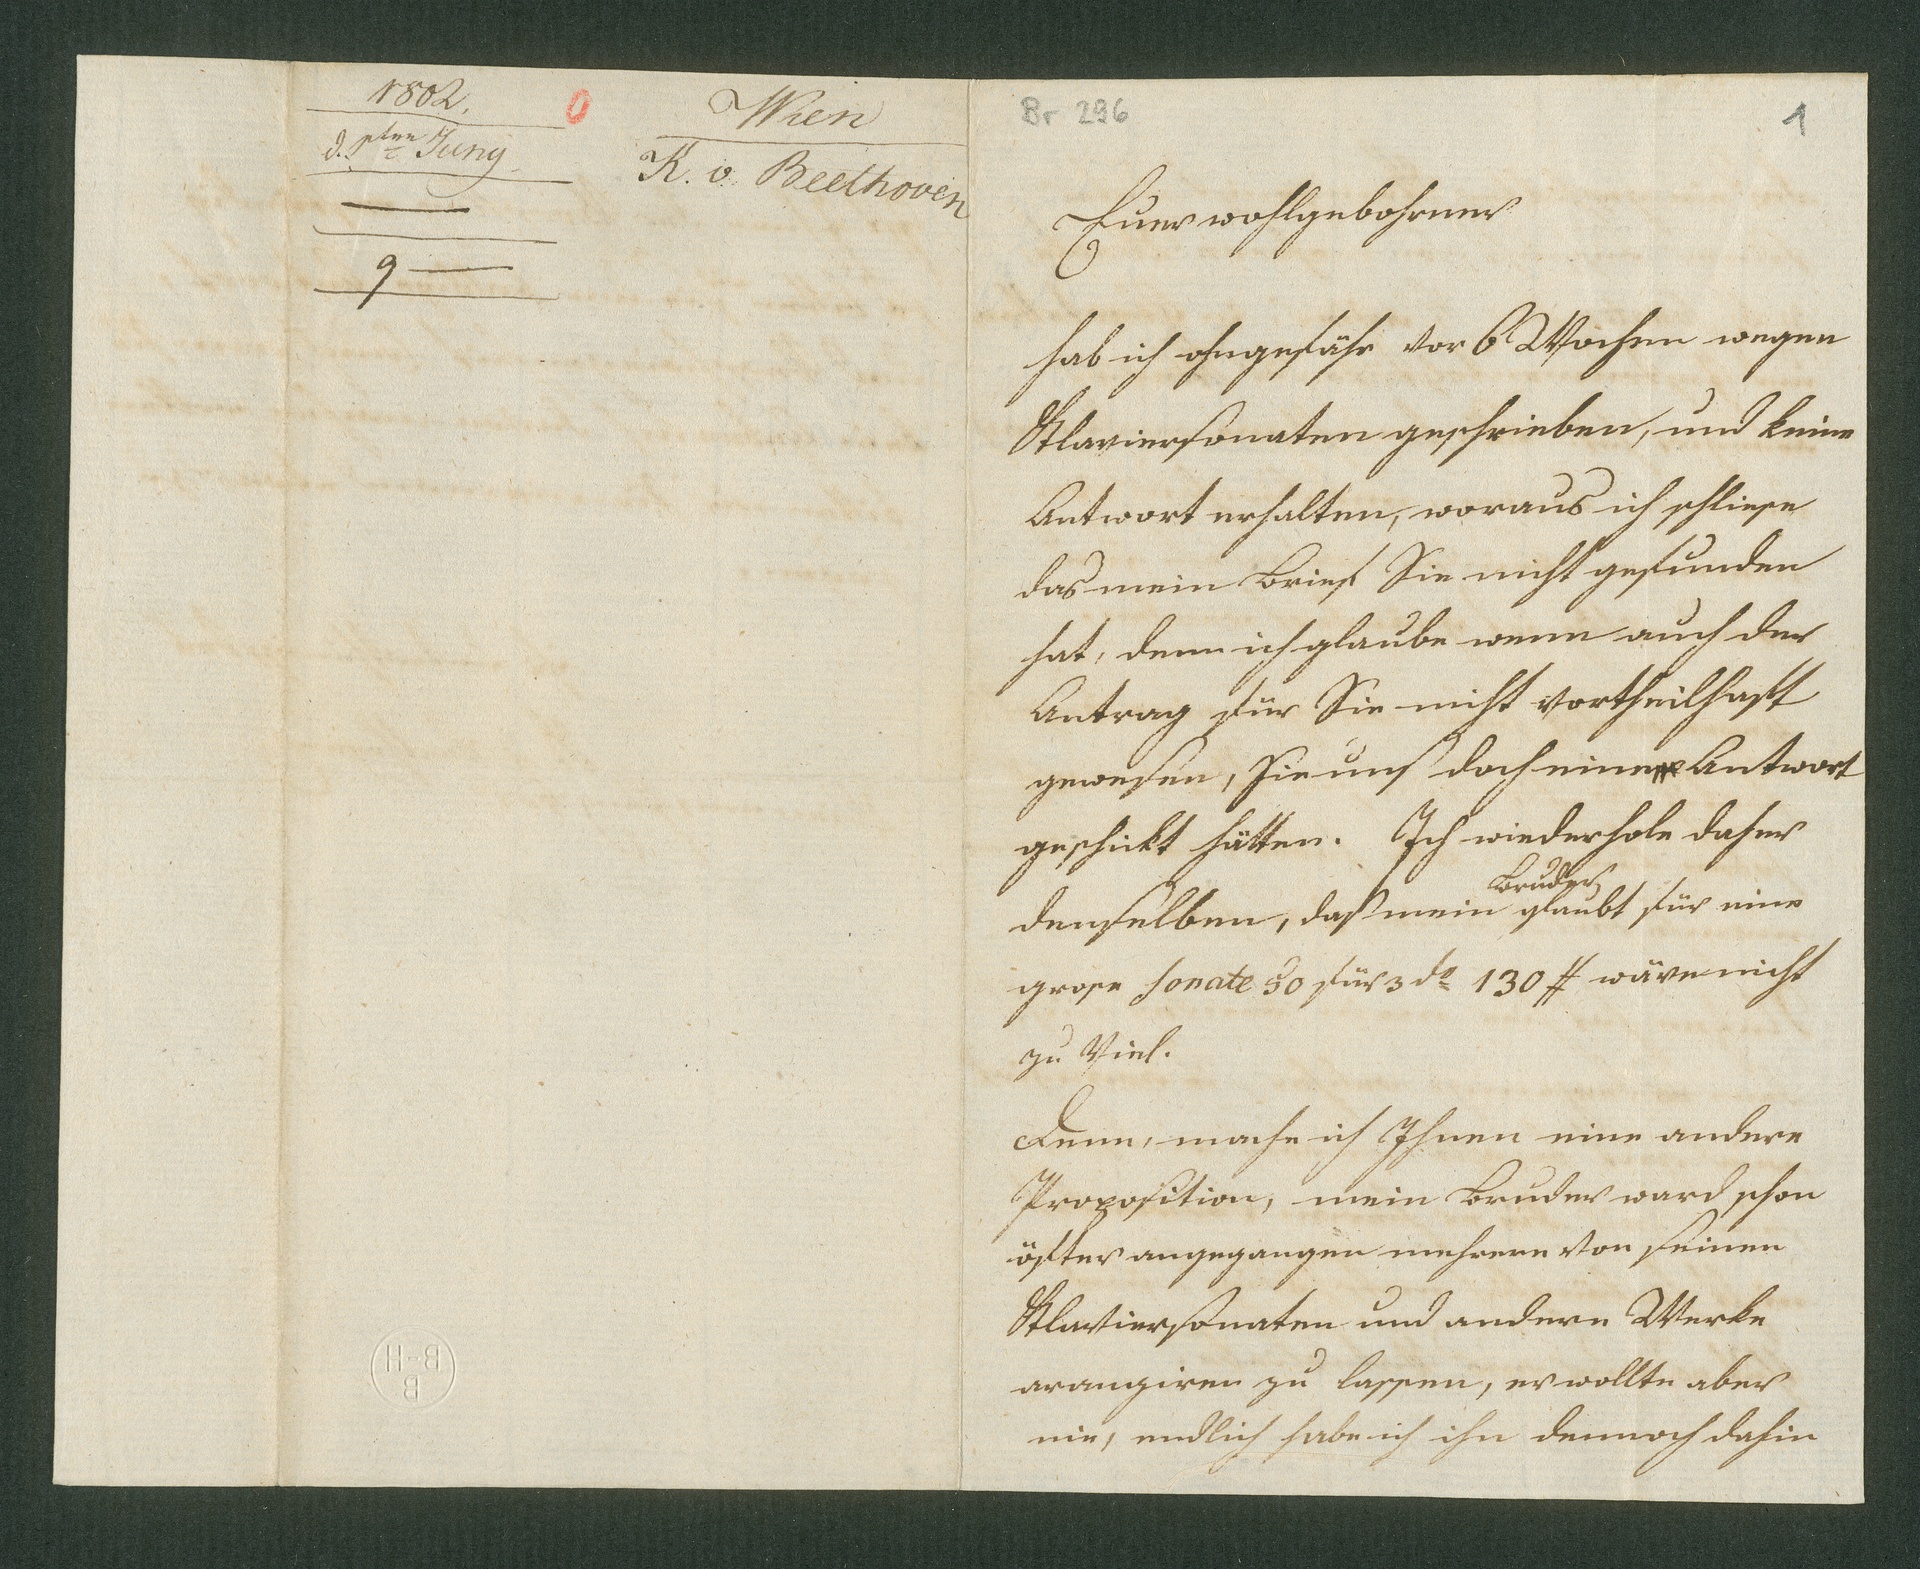 1802.
d. 1ten Juny
9
Wien
K. v. Beethoven
Br 296
1
Euer wohlgebohrner
hab ich ohngefähr vor 6 Wochen wegen
Klaviersonaten geschrieben, und keine
Antwort erhalten, woraus ich schliese
das mein Brief Sie nicht gefunden
hat, denn ich glaube wenn auch der
Antrag für Sie nicht vortheilhaft
gewesen, Sie uns doch eine Antwort
geschickt hätten. Ich wiederhole daher
denselben, daß mein Bruder glaubt für eine
grose Sonate 50 für 3 do 130 # wäre nicht
zu Viel.
Denn, mache ich Ihnen eine andere
Proposition, mein Bruder ward schon
öfter angegangen mehrere von seinen
Klaviersonaten und andere Werke
arangiren zu lassen, er wollte aber
nie, endlich habe ich ihn dennoch dahin
B-H
B